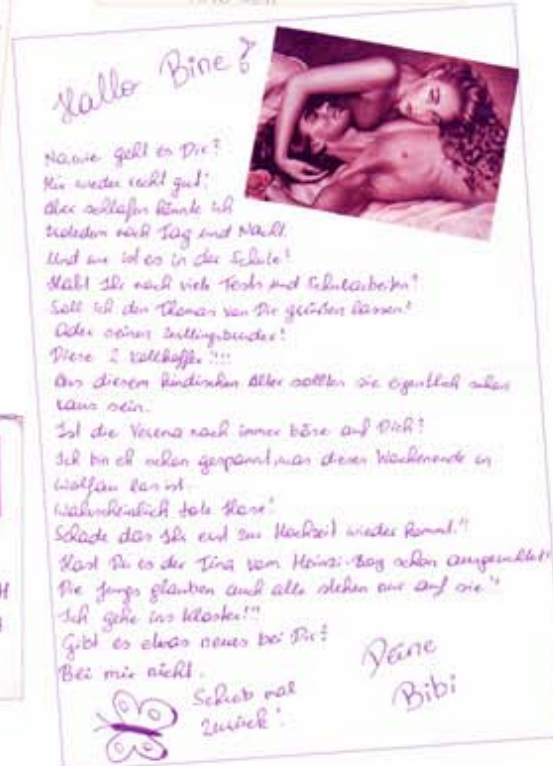 Hallo Bine!
Na, wie geht es Dir?
Mir wieder recht gut!
Aber schlafen könnte ich
trotzdem noch Tag und Nacht.
Und wie ist es in der Schule?
Habt Ihr noch viele Tests und Schularbeiten?
Soll ich den Thomas von Dir grüßen lassen?
Oder seinen Zwillingsbruder!
Diese 2 !!!!
Aus diesem kindischen Alter sollten sie eigentlich schon
raus sein.
Ist die Verena noch immer böse auf Dich?
Ich bin eh schon gespannt, was dieses Wochenende in
Wolfau los ist.
Wahrscheinlich tote Hose!
Schade das Ihr erst zur Hochzeit wieder kommt."
Hast Du es der Tina vom schon ausgerichtet?
Die Jungs glauben auch alle stehen nur auf sie"
Ich gehe ins Kloster!!"
Gibt es etwas neues bei Dir?
Bei mir nicht.
Schreib mal
zurück!
Deine
Bibi